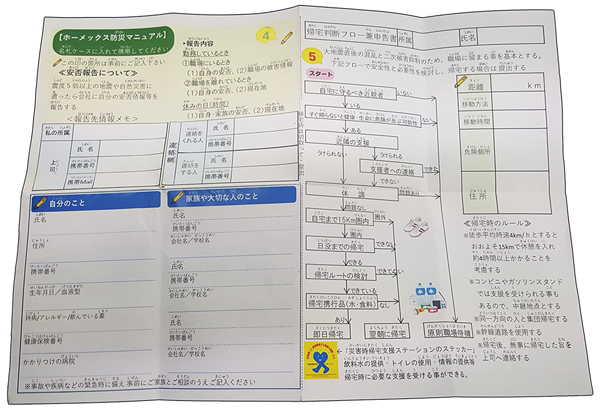 【ホーメックス防災マニュアル】
名札ケースに入れて携帯してください
この印の箇所は事前にご記入下さい
≪安否報告について≫
震度5弱以上の地震や自然災害に
遭ったら会社に自分の安否情報等を
報告する
≪報告先情報メモ≫
4
・報告内容
勤務しているとき
①職場にいるとき
(1)自身の安否、(2)職場の被害情報
②職場を離れているとき
(1)自身の安否、(2)現在地
休みの日(時間)
(1)自身・家族の安否、(2)現在地
私の所属
上司
氏名
携帯番号
携帯Mail
連絡網
連絡をくれる人
氏名
携帯番号
連絡をする人
氏名
携帯番号
自分のこと
氏名
住所
携帯番号
生年月日/血液型
持病/アレルギー/飲んでいる薬
健康保険番号
かかりつけの病院
家族や大切な人のこと
氏名
携帯番号
会社名/学校名
氏名
携帯番号
会社名/学校名
氏名
携帯番号
会社名/学校名
氏名
携帯番号
※事故や疾病などの緊急時に備え事前にご家族とご相談のうえご記入ください
帰宅判断フロー兼申告書
所属
氏名
5
大地震直後の混乱と二次被害抑制のため、職場に留まる事を基本とする。
下記フローで安全性と必要性を検討し、帰宅する場合は提出する
スタート
自宅に守るべき近親者
いない
いる
すぐ帰らないと健康・生命に危険が及ぶ可能性
ない
ある
近隣の支援
うけられない
うけられる
支援者への連絡
できた
できない
体調
問題あり
問題なし
自宅まで15Km圏内
圏外
圏内
日没までの帰宅
できない
できる
帰宅ルートの検討
できていない
できている
帰宅携行品(水・食料)
なし
あり
即日帰宅
翌朝に帰宅
原則職場待機
距離
km
移動方法
移動時間
危険個所
住所
≪帰宅時のルール≫
※徒歩平均時速4km/hとすると
およそ15kmで休憩を入れ
約4時間以上かかることを
考慮する
※コンビニやガソリンスタンド
では支援を受けられる事も
あるので、中継地点とする
※同一方向の人と集団帰宅する
※幹線道路を使用する
※帰宅後、無事に帰宅した旨を
上司へ連絡する
←「災害時帰宅支援ステーションのステッカー」
飲料水の提供・トイレの使用・情報の提供等
帰宅時に必要な支援を受ける事ができる。